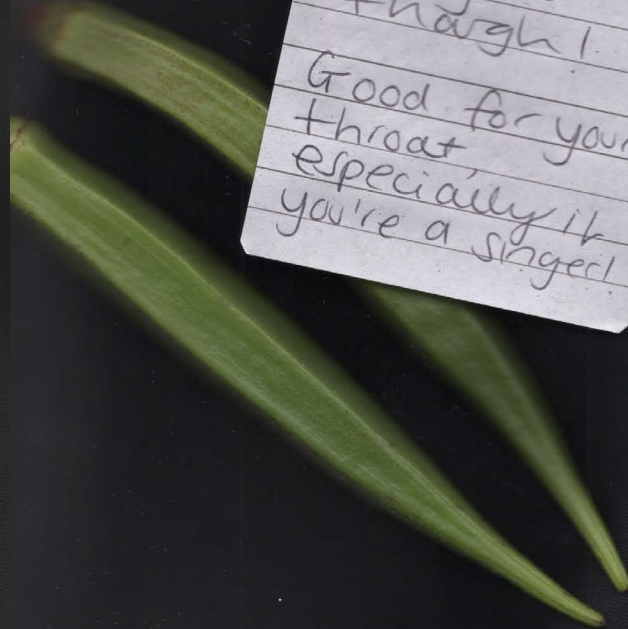 though!
Good for your
throat,
especially if
you're a singer!